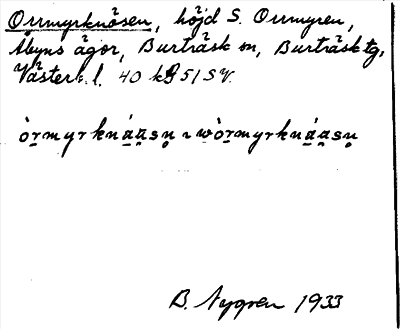 Orrmyrknösen, höjd S. Orrmyren,
Åbyns ägor, Burträsk sn, Burträsk tg,
Västerb. l. 40 kB 51 SV.
òr̥myrknáa̤sn̥ ~ wòr̥myrknáa̤sn̥
B. Nygren 1933